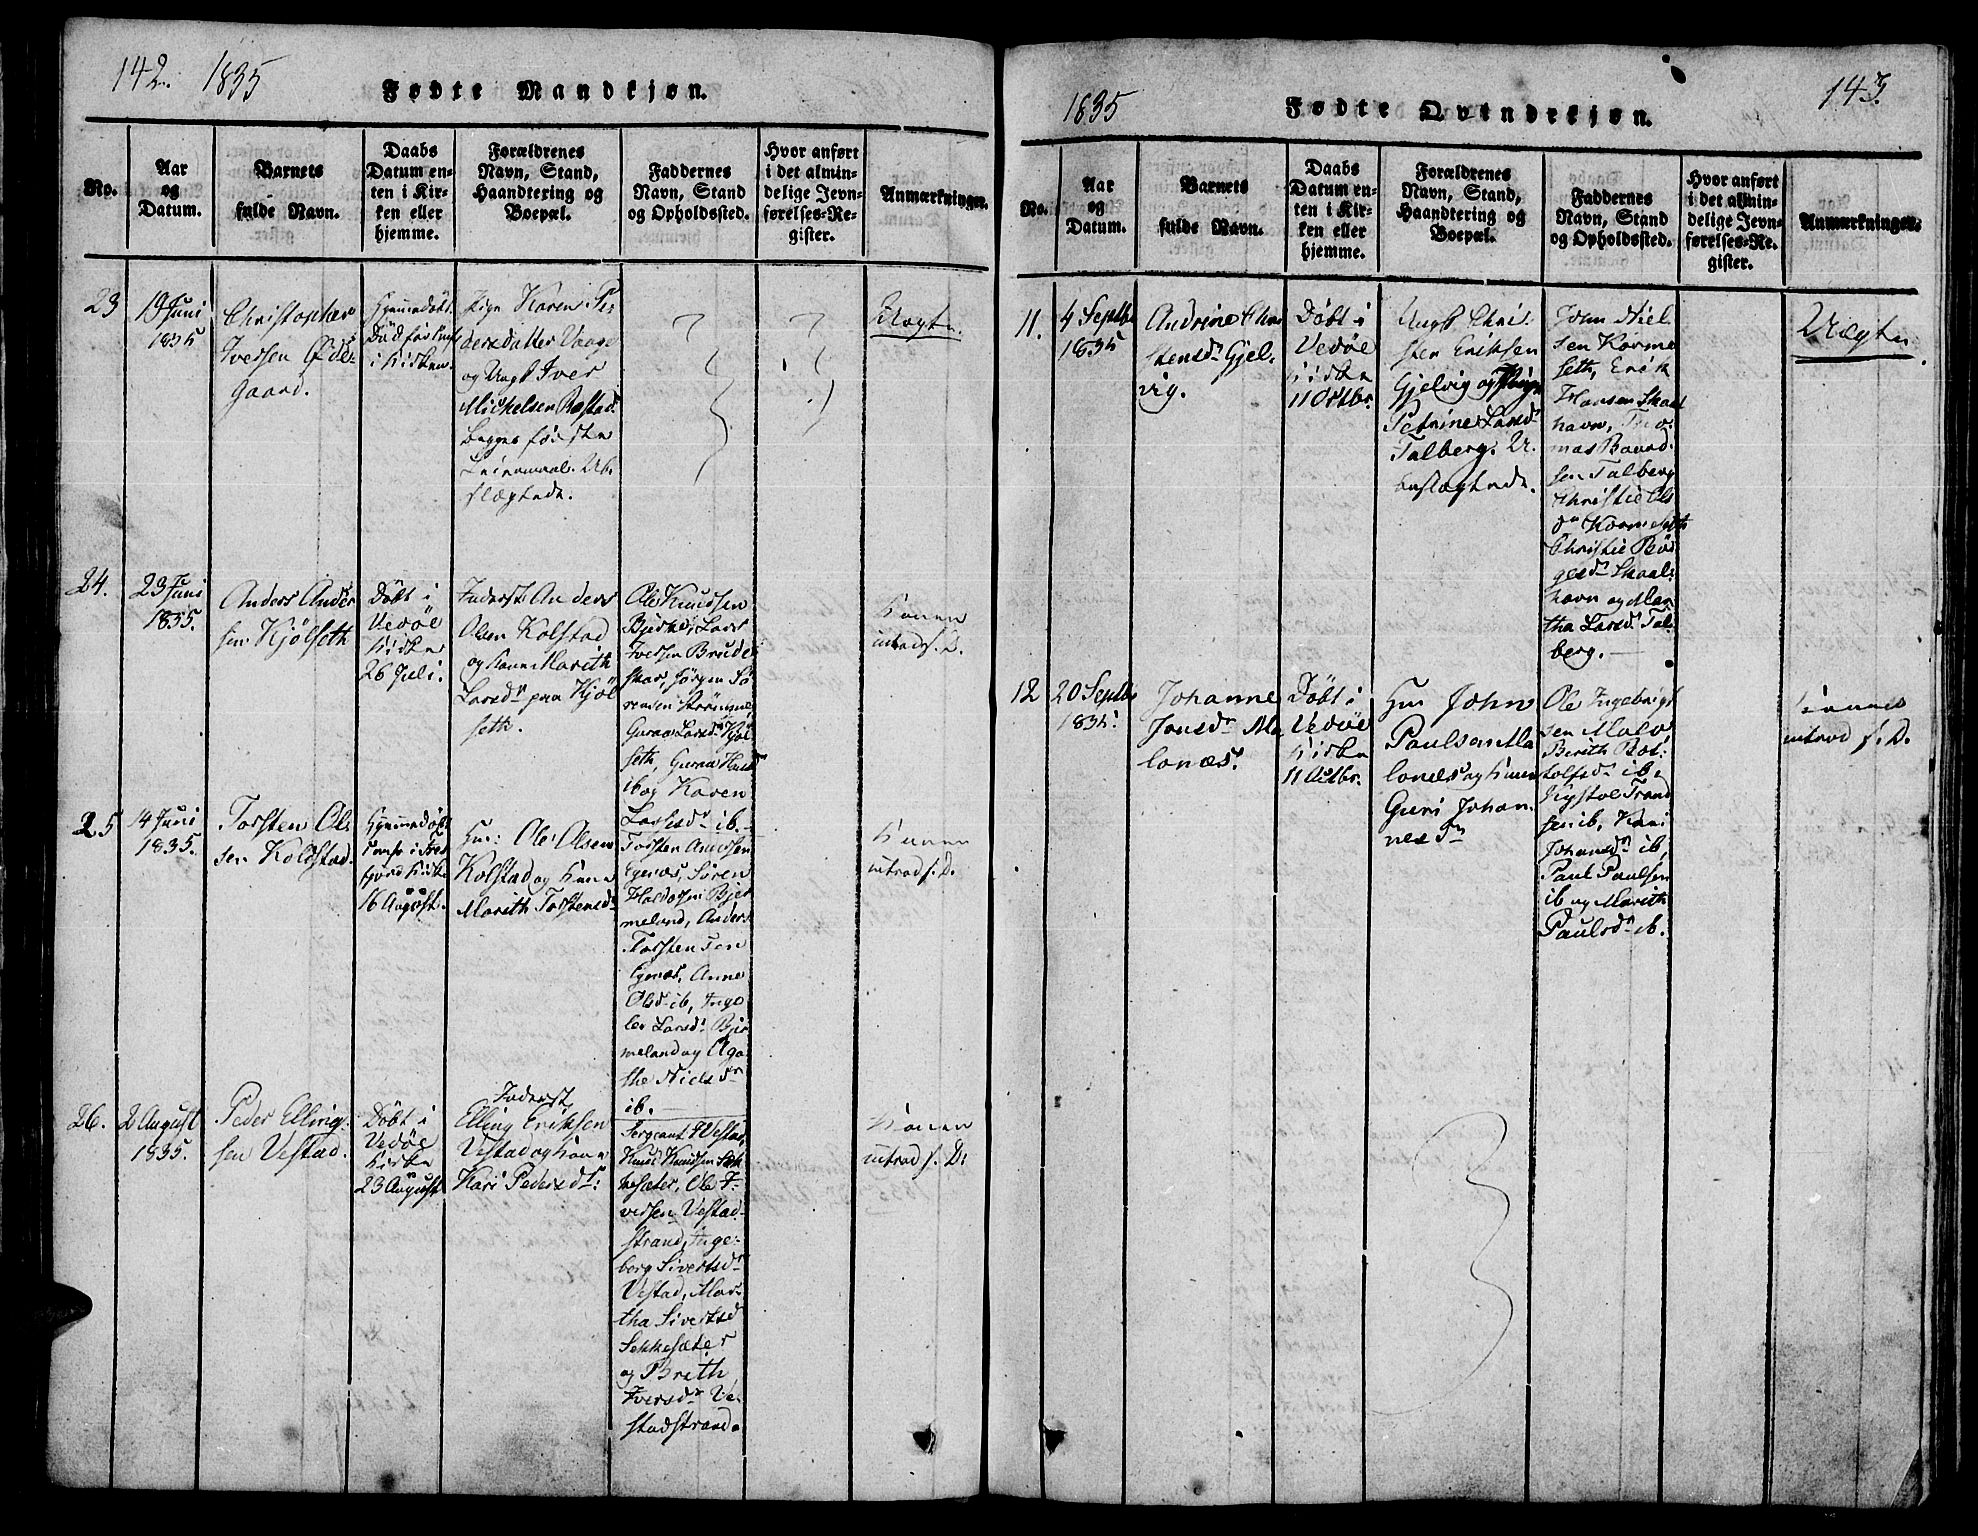 142. 1835
Fødte Mandkjøn.
No.
Aar
og
Datum.
Barnets
fulde Navn.
Daabs
Datum en-
ten i Kir-
ken eller
hjemme.
Forældrenes
Navn, Stand,
Haandtering og
Boepæl.
Faddernes
Navn, Stand
og Opholdssted.
Hvor anført
i det almin-
delige Jevn-
førelses-Re-
gister.
Anmærkninger.
23
19 Juni
1835
Christopher
Iversen Øde-
gaard.
Hjemmedöbt.
i Kirken.
Pige Karen Pe-
dersdatter Vaage
og Ungk Iver
Michelsen
Begges første
Leiermaal. Ub.
slægtede.
Uægte.
24.
23 Juni
1835.
Anders Ander
sen Kjölseth
Döbt i
Vedöe
Kirke
26 Juli.
Inderst Anders
Olsen Kolstad
og Kone Marith
Larsdr paa Kjöl
seth.
Ole Knudsen
Lars
Iversen Brude
skar, Jörgen Sö
rensen Strömme,
Guraa Larsdr Kjöl
seth, Guraa
ib og Karen
Larsdr ib.
Konen
introd f. D.
25
14 Juni
1835.
Torsten Ol
sen Koldstad.
Hjemmedöbt
i Fres
fjord Kirke
16 August.
Huu: Ole Olsen
Kolstad og Kone
Marith Torstensdr
Torsten
Egenæs, Sören
Bjer
meland, Anders
Torsten
Egenæs, Anne
Olsdr ib, Inge
Larsdr Bjer
meland og Aga
the Nielsdr
ib.
Konen
introd f. D.
26.
2 August
1835.
Peder Elling
sen Vestad.
Döbt i
Vedöe
Kirke
23 August
Inderst
Elling Eriksen
Vestad og Kone
Kari Pedersdr:
Sergeant Vestad,
Knud Knudsen Sek
kesæter, Ole I-
versen Vestad-
strand, Inge-
borg Sivertsdr
Vestad, Mar-
tha Sivertsd
Sekkesæter
og Brith
Iversdr Ve-
stadstrand.
Konen
introd f. D.
1835
Fødte Qvindekjøn.
143.
No.
Aar
og
Datum.
Barnets
fulde Navn.
Daabs
Datum en-
ten i Kir-
ken eller
hjemme.
Forældrenes
Navn, Stand,
Haandtering og
Boepæl.
Faddernes
Navn, Stand
og Opholdssted.
Hvor anført
i det almin-
delige Jevn-
førelses-Re-
gister.
Anmærkninger.
11.
4 Septbr
1835
Andrine Chri
stensdr Gjel-
vig.
Döbt i
Vedöe
Kirke
11 Octbr.
Ungk Chri-
sten Eriksen
Gjelvig og Pige
Petrine Larsdr
Talberg. U-
beslægtede.
John Niel
sen Korme
seth, Erik
Hansen Skaal
havn, Tho-
mas Baard
sen Talberg
Christie Ols
dr Kormeseth
Christie
Skaal-
havn og Mar
tha Larsdr Tal
berg.
Uægte
12
20 Septbr
1835
Johanne
Jonsdr Ma
lonæs.
Döbt i
Vedöe
Kirke
11 Octbr.
Huu John
Paulsen Ma
lonæs og Konen
Guri Johan-
nesdr
Ole Ingebrigt
sen Maloe
Berith Bot-
tolfsdr ib.
ib, Kari
Johansdr ib
Paul Paulsen
ib og Marith
Paulsdr ib.
Konen
introd f. D.